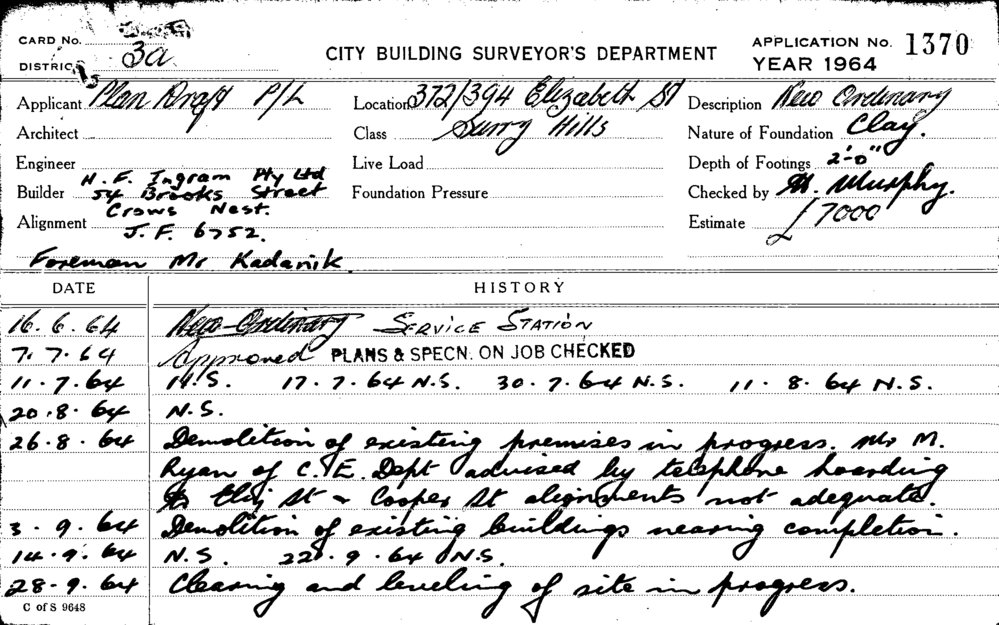 CARD No.
DISTRICT 3a
CITY BUILDING SURVEYOR'S DEPARTMENT
APPLICATION No. 1370
YEAR 1964
Applicant Plan Draft P/L
Location 372/394 Elizabeth St
Surry Hills
Description New Ordinary
Architect
Class
Nature of Foundation Clay.
Engineer
Live Load
Depth of Footings 2'-0"
H. F. Ingram Pty Ltd
Builder 54 Brooks Street
Foundation Pressure
Checked by M. Murphy.
Crows Nest.
Alignment
Estimate £7000
J.F. 6752.
Foreman Mr Kadarik
DATE HISTORY
16.6.64 New Ordinary SERVICE STATION
7.7.64 Approved PLANS & SPECN. ON JOB CHECKED
11.7.64 N.S. 17.7.64 N.S. 30.7.64 N.S. 11.8.64 N.S.
20.8.64 N.S.
26.8.64 Demolition of existing premises in progress. Mr M.
Ryan of C.E. Dept advised by telephone hoarding
to Eliz St & Cooper St alignments not adequate.
3.9.64 Demolition of existing buildings nearing completion.
14.9.64 N.S. 22.9.64 N.S.
28.9.64 Clearing and leveling of site in progress.
C of S 9648